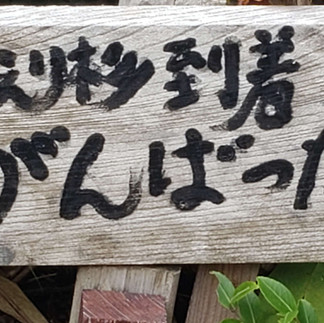 り杉到着
がんばった